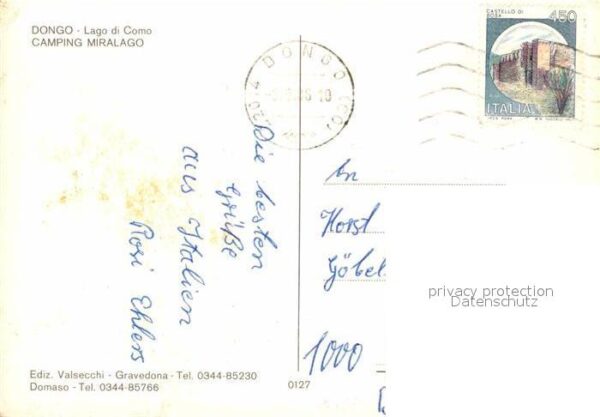 DONGO - Lago di Como
CAMPING MIRALAGO
DONGO (CO)
CASTELLO DI
BOSA
450
ITALIA
Die besten
Grüße
aus Italien
Rosi Ehlers
An
Horst
Göbel
privacy protection
Datenschutz
1000
Ediz. Valsecchi - Gravedona - Tel. 0344-85230
Domaso - Tel. 0344-85766
0127